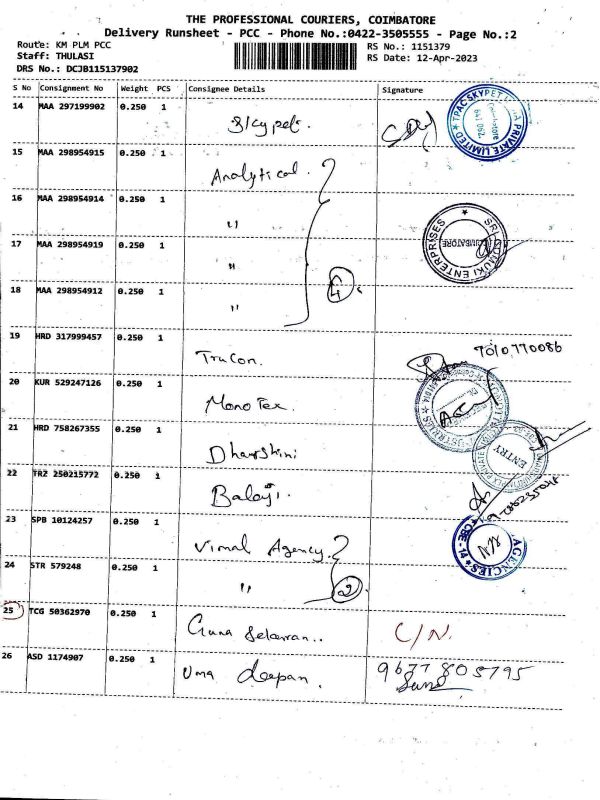 THE PROFESSIONAL COURIERS, COIMBATORE
Delivery Runsheet - PCC - Phone No.:0422-3505555 - Page No.:2
Route: KM PLM PCC
RS No.: 1151379
Staff: THULASI
RS Date: 12-Apr-2023
DRS No.: DCJB115137902
S No Consignment No Weight PCS Consignee Details Signature
14 MAA 297199902 0.250 1 Skypet.
15 MAA 298954915 0.250 1 Analytical.
16 MAA 298954914 0.250 1 "
17 MAA 298954919 0.250 1 "
4
18 MAA 298954912 0.250 1 "
19 HRD 317999457 0.250 1 Trucon. 7010770086
20 KUR 529247126 0.250 1 Mono Tex.
21 HRD 758267355 0.250 1 Dharshini
ENTRY
22 TRZ 250215772 0.250 1 Balaji.
23 SPB 10124257 0.250 1 Vimal Agency
AGENCIES CBE-14
24 STR 579248 0.250 1 "
2
25 TCG 50362970 0.250 1 Guna Selavan.. C/N.
26 ASD 1174907 0.250 1 Uma deepan. 9677805795
PRIVATE LIMITED
ENTERPRISES
COIMBATORE